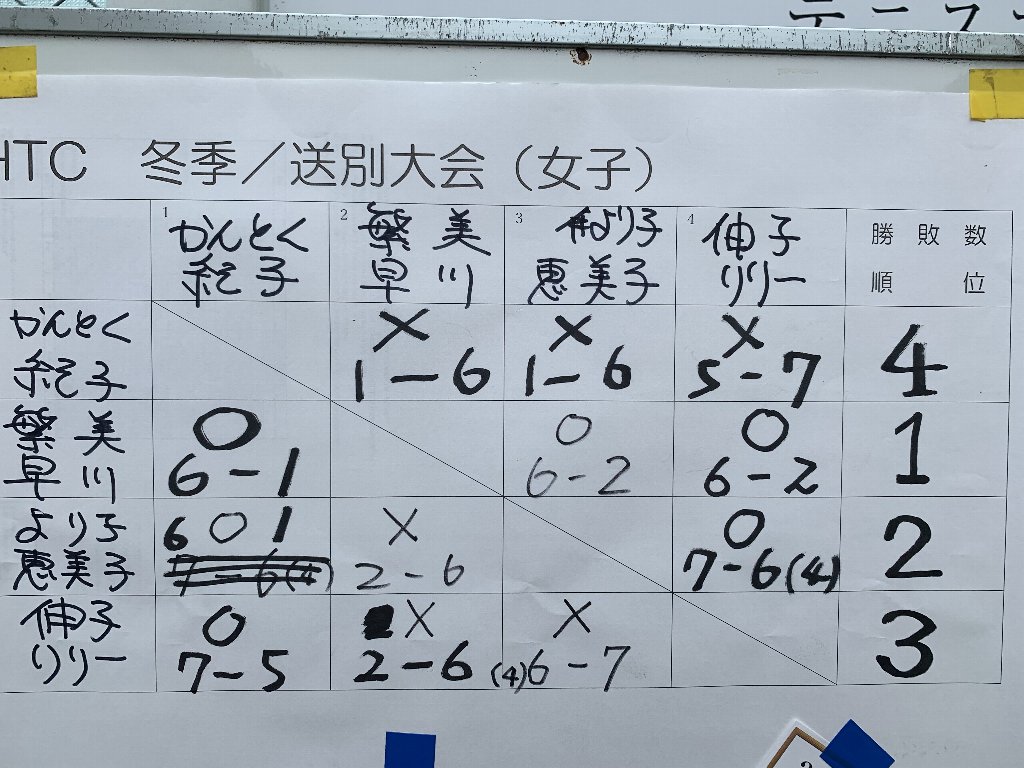 テニス
HTC 冬季／送別大会（女子）
1 かんとく 紀子
2 繁美 早川
3 より子 恵美子
4 伸子 リリー
勝敗数 順位
かんとく 紀子 × 1-6 × 1-6 × 5-7 4
繁美 早川 ○ 6-1 ○ 6-2 ○ 6-2 1
より子 恵美子 6 ○ 1 × 2-6 ○ 7-6(4) 2
伸子 リリー ○ 7-5 × 2-6 × (4)6-7 3